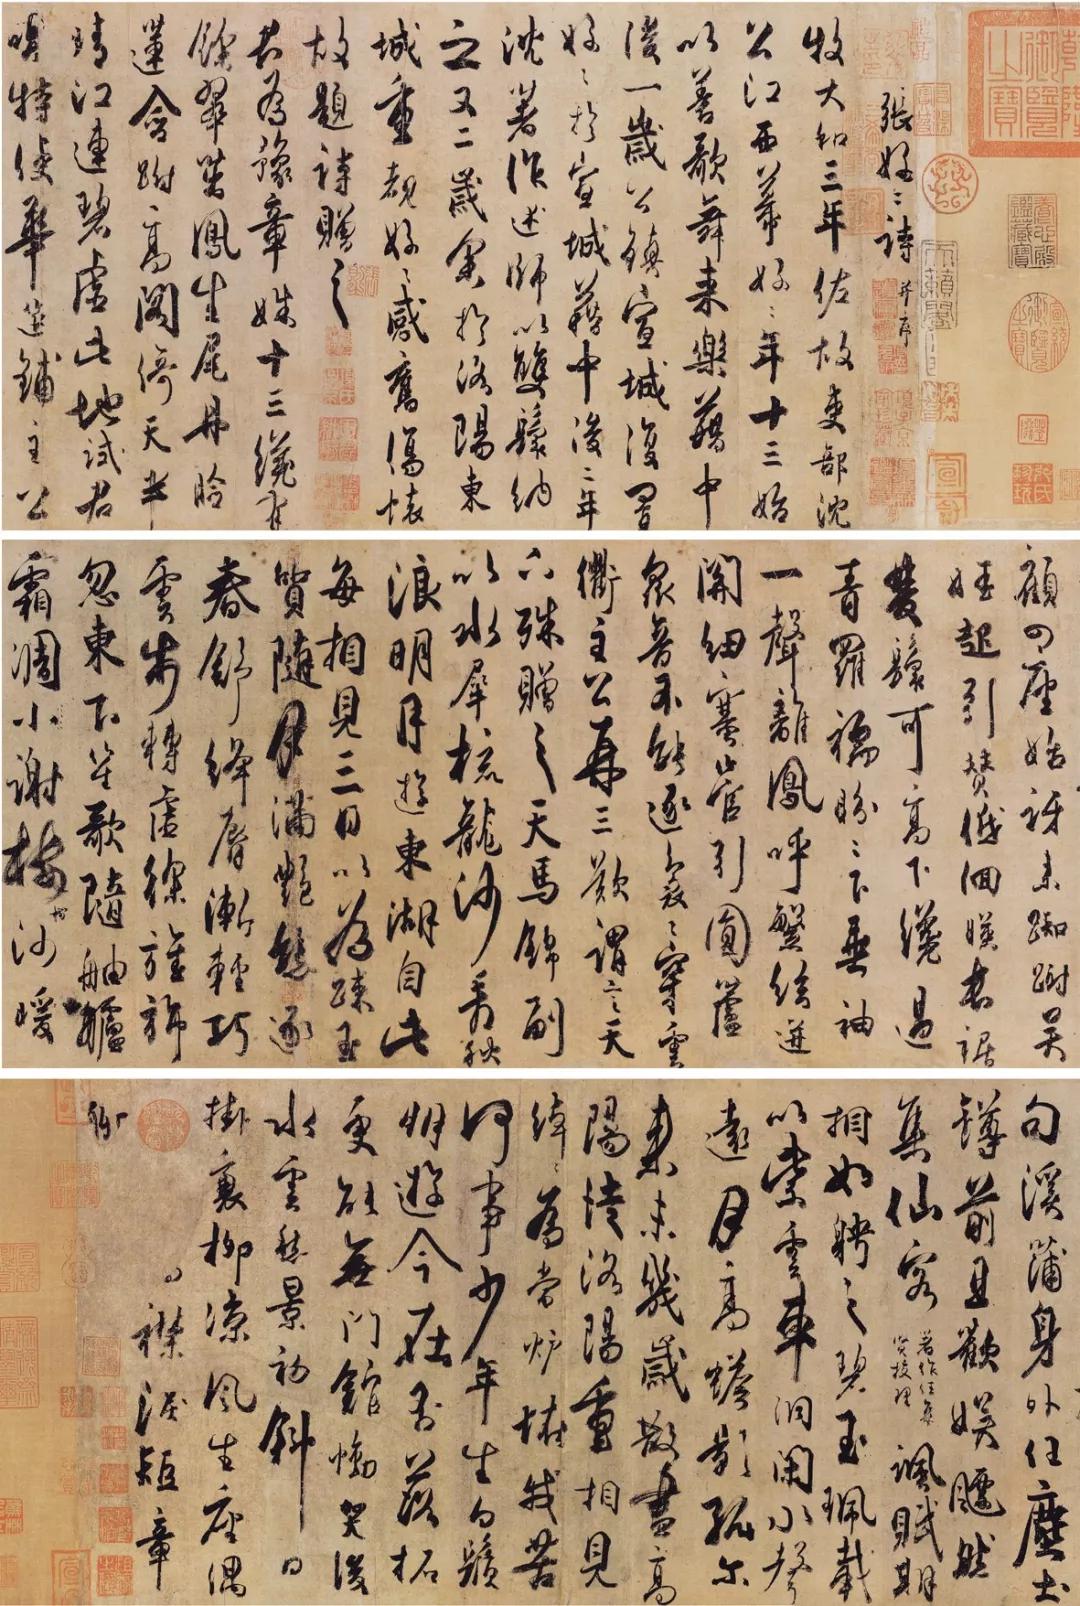 乾隆御覽之寶
養心殿鑑藏寶
宣統御覽之寶
天籟閣
張好好詩 并序
牧大和三年佐故吏部沈
公江西幕好好年十三始
以善歌舞來樂籍中
後一歲公鎮宣城復置
好好於宣城籍中後二年
沈著作述師以雙鬟納
之又二歲余於洛陽東
城重覩好好感舊傷懷
故題詩贈之
君為豫章姝十三纔有
餘翠茁鳳生尾丹臉
蓮含跗高閣倚天半
晴江連碧虛此地試君
唱特使華筵鋪主公
顧四座始訝來踟躕吳
娃起引贊低佪暎長裾
雙鬟可高下纔過
青羅襦盼盼下垂袖
一聲離鳳呼繁弦迸
關紐塞管引圓蘆
眾音不能逐裊裊穿雲
衢主公再三歎謂言天
下殊贈之天馬錦副
以水犀梳龍沙看秋
浪明月遊東湖自此
每相見三日以為疎玉
質隨月滿艷態逐
春舒絳脣漸輕巧
雲步轉虛徐旌旆
忽東下笙歌隨舳艫
霜凋小謝樹沙暖
句溪蒲身外任塵土
罇前且歡娛飄然
集仙客 著作任集賢校理 諷賦期
相如聘之碧玉珮載
以紫雲車洞閉水聲
遠月高蟾影孤爾
來未幾歲散盡高
陽徒洛陽重相見
綽綽為當壚怪我苦
何事少年生白鬚
朋遊今在否落拓
更能無門館慟哭後
水雲愁景初斜日
掛衰柳涼風生座隅
襟淚短章
聊